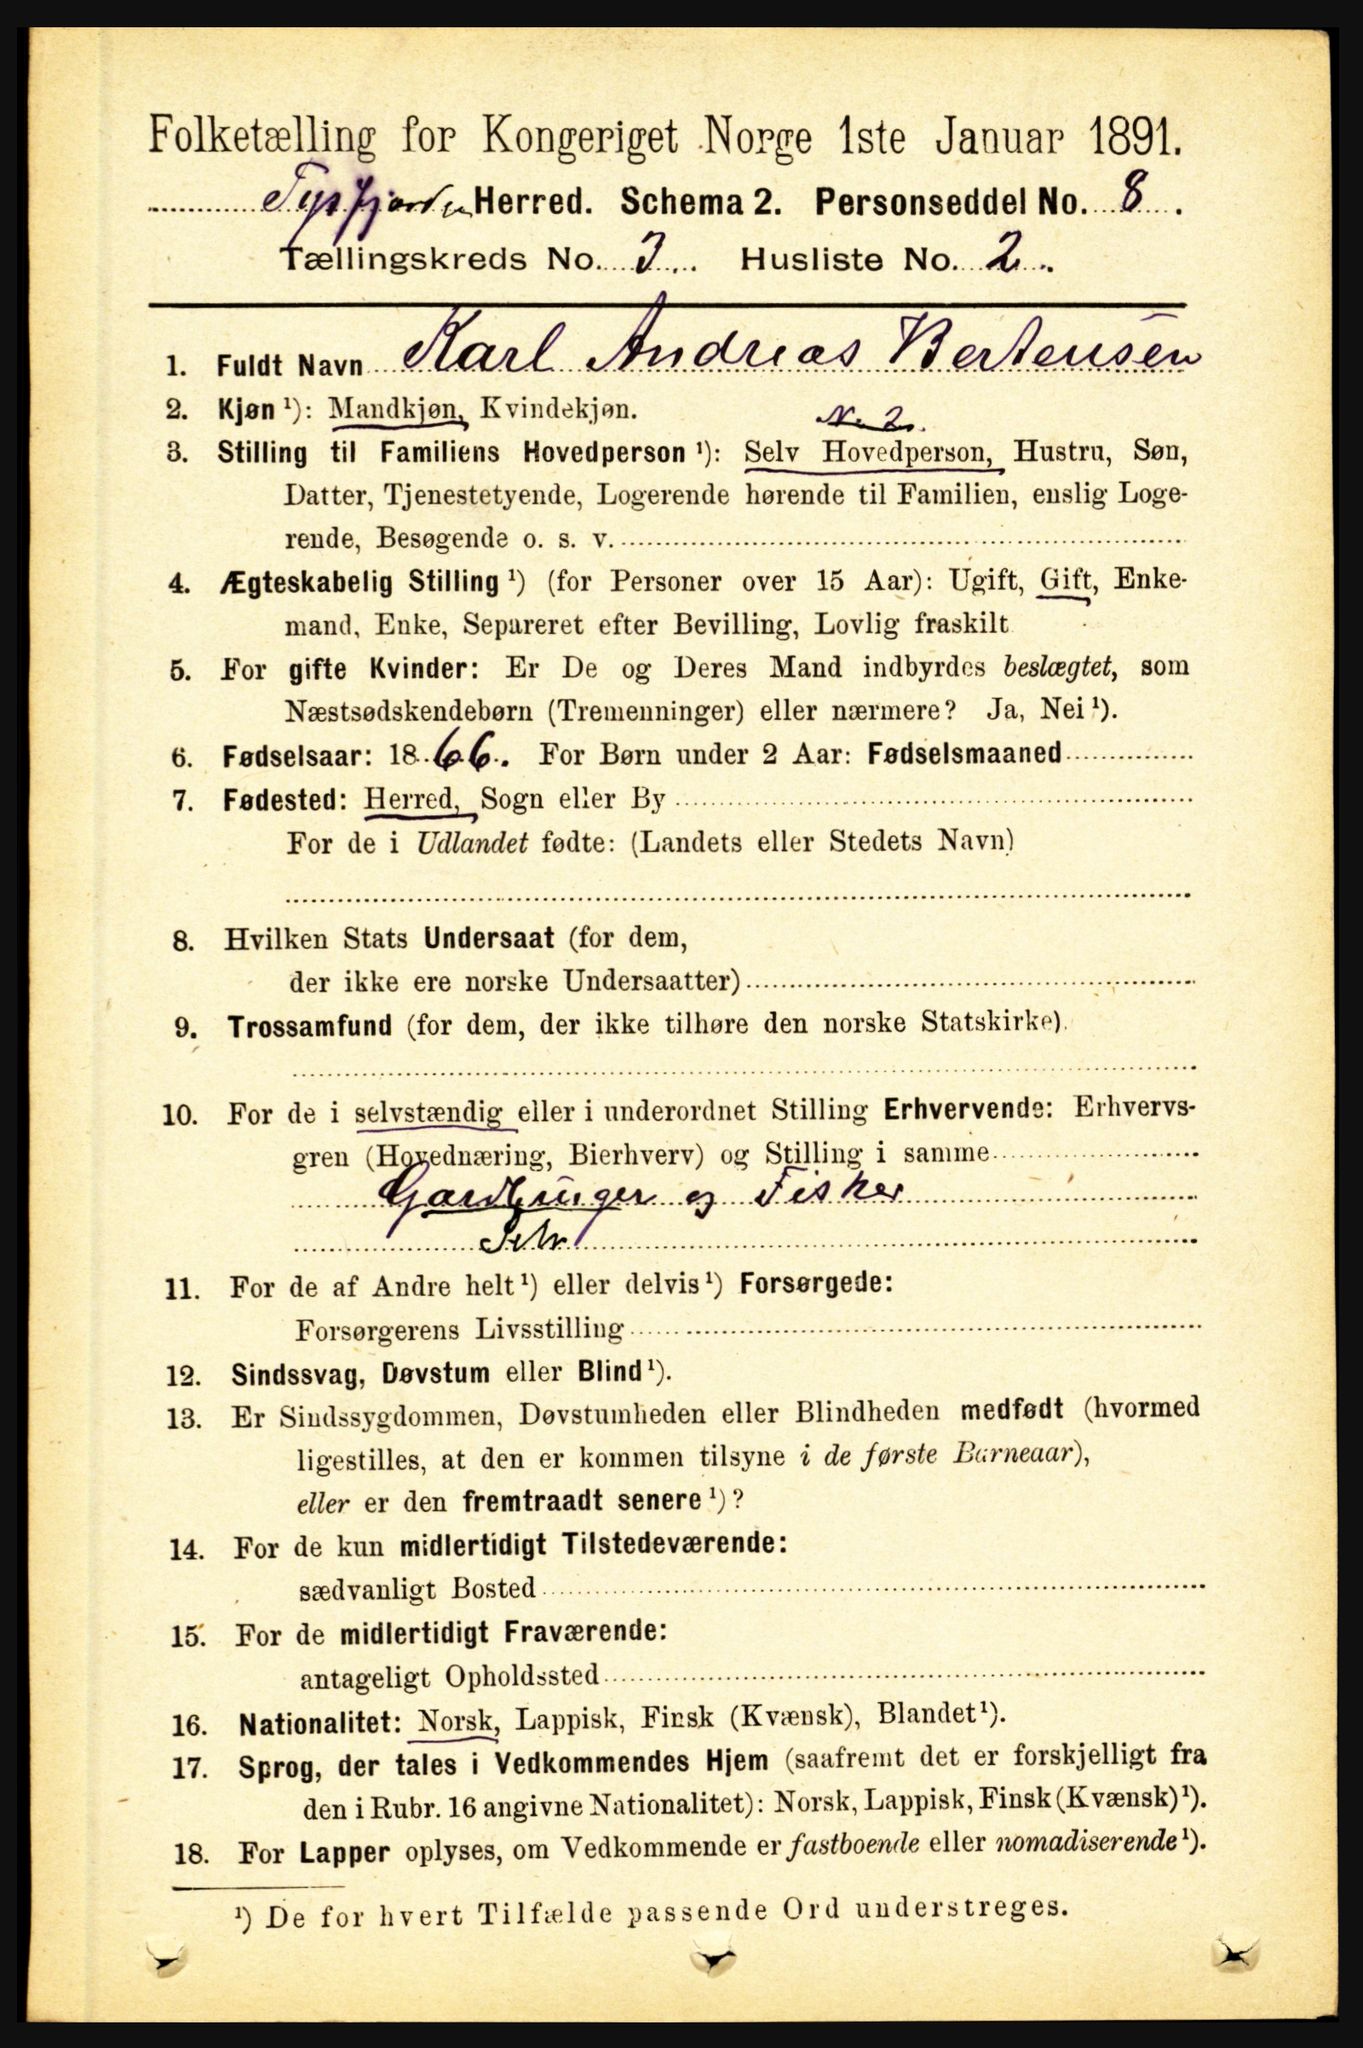 Folketælling for Kongeriget Norge 1ste Januar 1891.
Tysfjorden Herred. Schema 2. Personseddel No. 8.
Tællingskreds No. 3. Husliste No. 2.
1. Fuldt Navn Karl Andreas Bertensen
2. Kjøn ¹): Mandkjøn, Kvindekjøn.
No. 2.
3. Stilling til Familiens Hovedperson ¹): Selv Hovedperson, Hustru, Søn,
Datter, Tjenestetyende, Logerende hørende til Familien, enslig Loge-
rende, Besøgende o. s. v.
4. Ægteskabelig Stilling ¹) (for Personer over 15 Aar): Ugift, Gift, Enke-
mand, Enke, Separeret efter Bevilling, Lovlig fraskilt
5. For gifte Kvinder: Er De og Deres Mand indbyrdes beslægtet, som
Næstsødskendebørn (Tremenninger) eller nærmere? Ja, Nei ¹).
6. Fødselsaar: 1866. For Børn under 2 Aar: Fødselsmaaned
7. Fødested: Herred, Sogn eller By
For de i Udlandet fødte: (Landets eller Stedets Navn)
8. Hvilken Stats Undersaat (for dem,
der ikke ere norske Undersaatter)
9. Trossamfund (for dem, der ikke tilhøre den norske Statskirke).
10. For de i selvstændig eller i underordnet Stilling Erhvervende: Erhvervs-
gren (Hovednæring, Bierhverv) og Stilling i samme
Gardbruger og Fisker
Selv
11. For de af Andre helt ¹) eller delvis ¹) Forsørgede:
Forsørgerens Livsstilling
12. Sindssvag, Døvstum eller Blind ¹).
13. Er Sindssygdommen, Døvstumheden eller Blindheden medfødt (hvormed
ligestilles, at den er kommen tilsyne i de første Barneaar),
eller er den fremtraadt senere ¹)?
14. For de kun midlertidigt Tilstedeværende:
sædvanligt Bosted
15. For de midlertidigt Fraværende:
antageligt Opholdssted
16. Nationalitet: Norsk, Lappisk, Finsk (Kvænsk), Blandet ¹).
17. Sprog, der tales i Vedkommendes Hjem (saafremt det er forskjelligt fra
den i Rubr. 16 angivne Nationalitet): Norsk, Lappisk, Finsk (Kvænsk) ¹).
18. For Lapper oplyses, om Vedkommende er fastboende eller nomadiserende ¹).
¹) De for hvert Tilfælde passende Ord understreges.